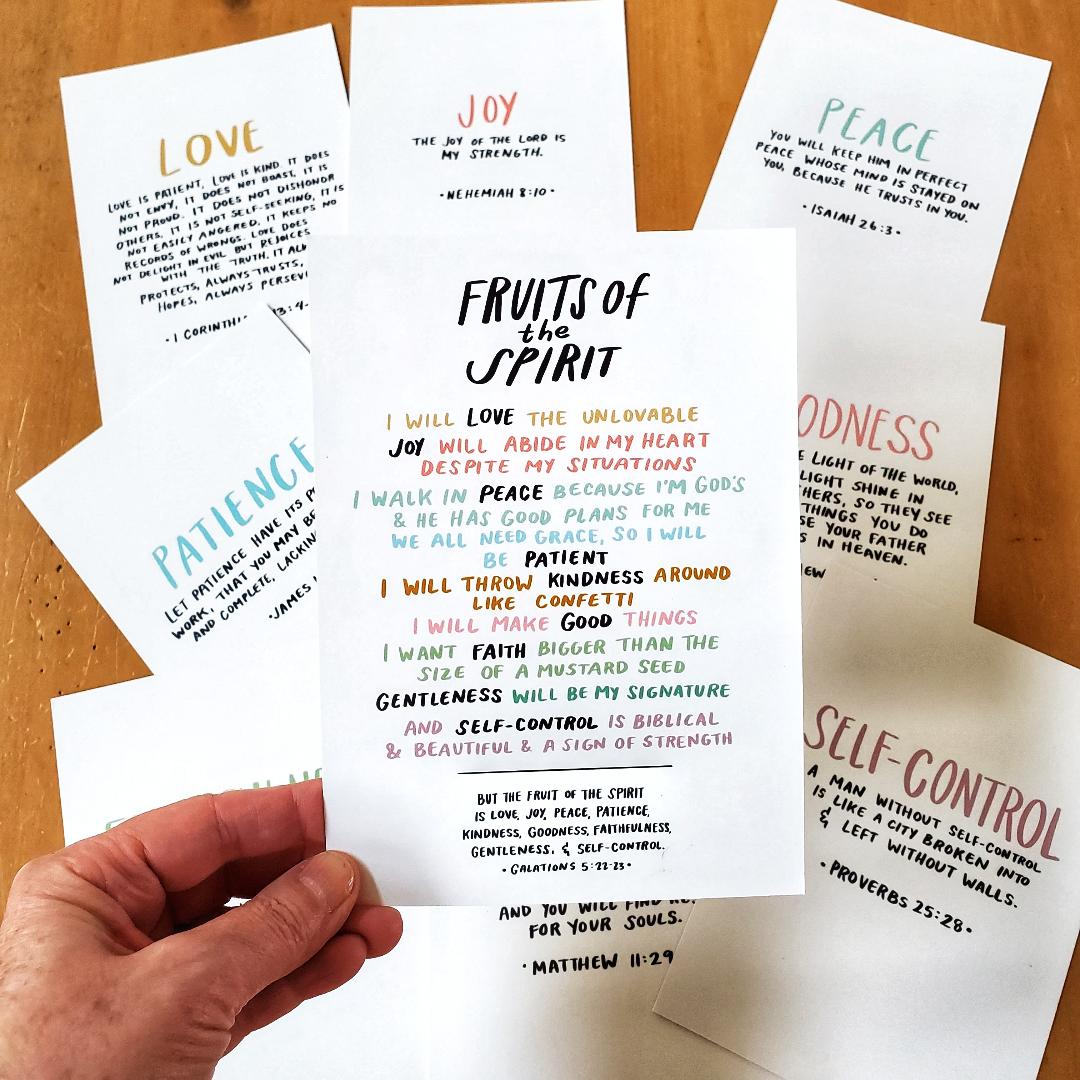 LOVE
LOVE IS PATIENT, LOVE IS KIND. IT DOES
NOT ENVY, IT DOES NOT BOAST, IT IS
NOT PROUD. IT DOES NOT DISHONOR
OTHERS, IT IS NOT SELF-SEEKING, IT IS
NOT EASILY ANGERED, IT KEEPS NO
RECORDS OF WRONGS. LOVE DOES
NOT DELIGHT IN EVIL BUT REJOICES
WITH THE TRUTH. IT
PROTECTS, ALWAYS TRUSTS,
HOPES, ALWAYS
· 1
JOY
THE JOY OF THE LORD IS
MY STRENGTH.
· NEHEMIAH 8:10 ·
PEACE
YOU WILL KEEP HIM IN PERFECT
PEACE WHOSE MIND IS STAYED ON
YOU, BECAUSE HE TRUSTS IN YOU.
· ISAIAH 26:3 ·
PATIENCE
LET PATIENCE HAVE ITS
WORK, THAT YOU MAY BE
AND COMPLETE,
· JAMES
FRUITS OF
the
SPIRIT
I WILL LOVE THE UNLOVABLE
JOY WILL ABIDE IN MY HEART
DESPITE MY SITUATIONS
I WALK IN PEACE BECAUSE I'M GOD'S
& HE HAS GOOD PLANS FOR ME
WE ALL NEED GRACE, SO I WILL
BE PATIENT
I WILL THROW KINDNESS AROUND
LIKE CONFETTI
I WILL MAKE GOOD THINGS
I WANT FAITH BIGGER THAN THE
SIZE OF A MUSTARD SEED
GENTLENESS WILL BE MY SIGNATURE
AND SELF-CONTROL IS BIBLICAL
& BEAUTIFUL & A SIGN OF STRENGTH
BUT THE FRUIT OF THE SPIRIT
IS LOVE, JOY, PEACE, PATIENCE,
KINDNESS, GOODNESS, FAITHFULNESS,
GENTLENESS, & SELF-CONTROL.
· GALATIONS 5:22-23 ·
ODNESS
E LIGHT OF THE WORLD,
LIGHT SHINE IN
HERS, SO THEY SEE
THINGS YOU DO
SE YOUR FATHER
S IN HEAVEN.
EW
SELF-CONTROL
A MAN WITHOUT SELF-CONTROL
IS LIKE A CITY BROKEN INTO
& LEFT WITHOUT WALLS.
· PROVERBS 25:28 ·
AND YOU WILL FIND
FOR YOUR SOULS.
· MATTHEW 11:29